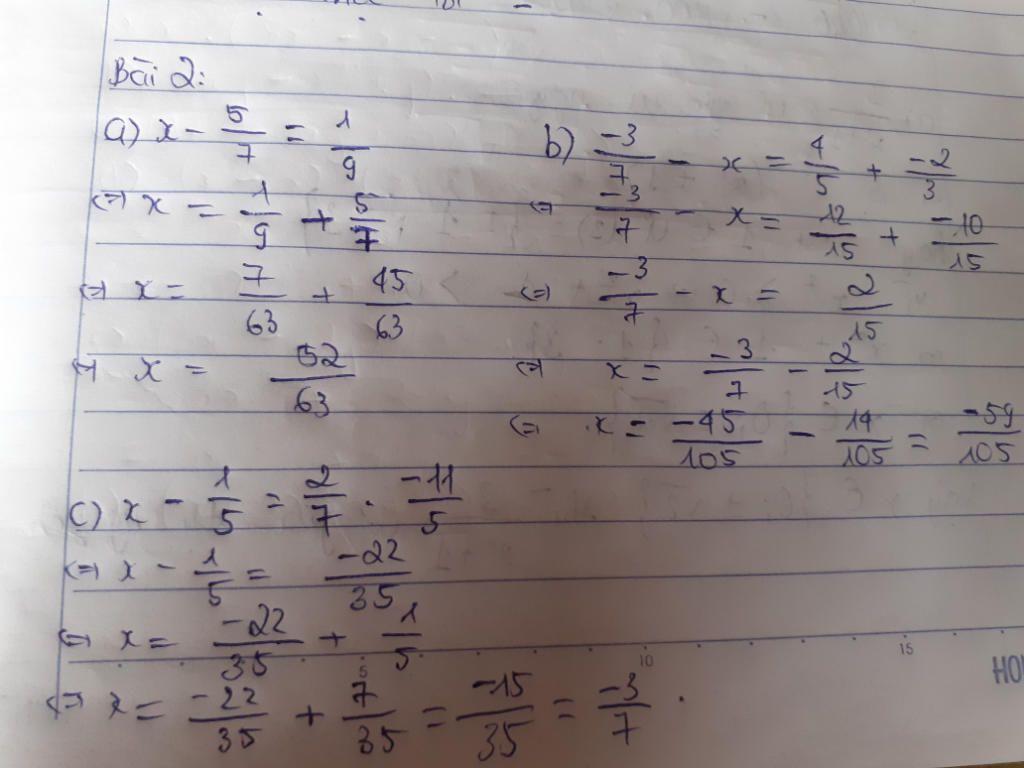 Bài 2:
a) x - 5/7 = 1/9
⇔ x = 1/9 + 5/7
⇔ x = 7/63 + 45/63
⇔ x = 52/63
b) -3/7 - x = 4/5 + -2/3
⇔ -3/7 - x = 12/15 + -10/15
⇔ -3/7 - x = 2/15
⇔ x = -3/7 - 2/15
⇔ x = -45/105 - 14/105 = -59/105
c) x - 1/5 = 2/7 . -11/5
⇔ x - 1/5 = -22/35
⇔ x = -22/35 + 1/5
⇔ x = -22/35 + 7/35 = -15/35 = -3/7 .
5 10 15